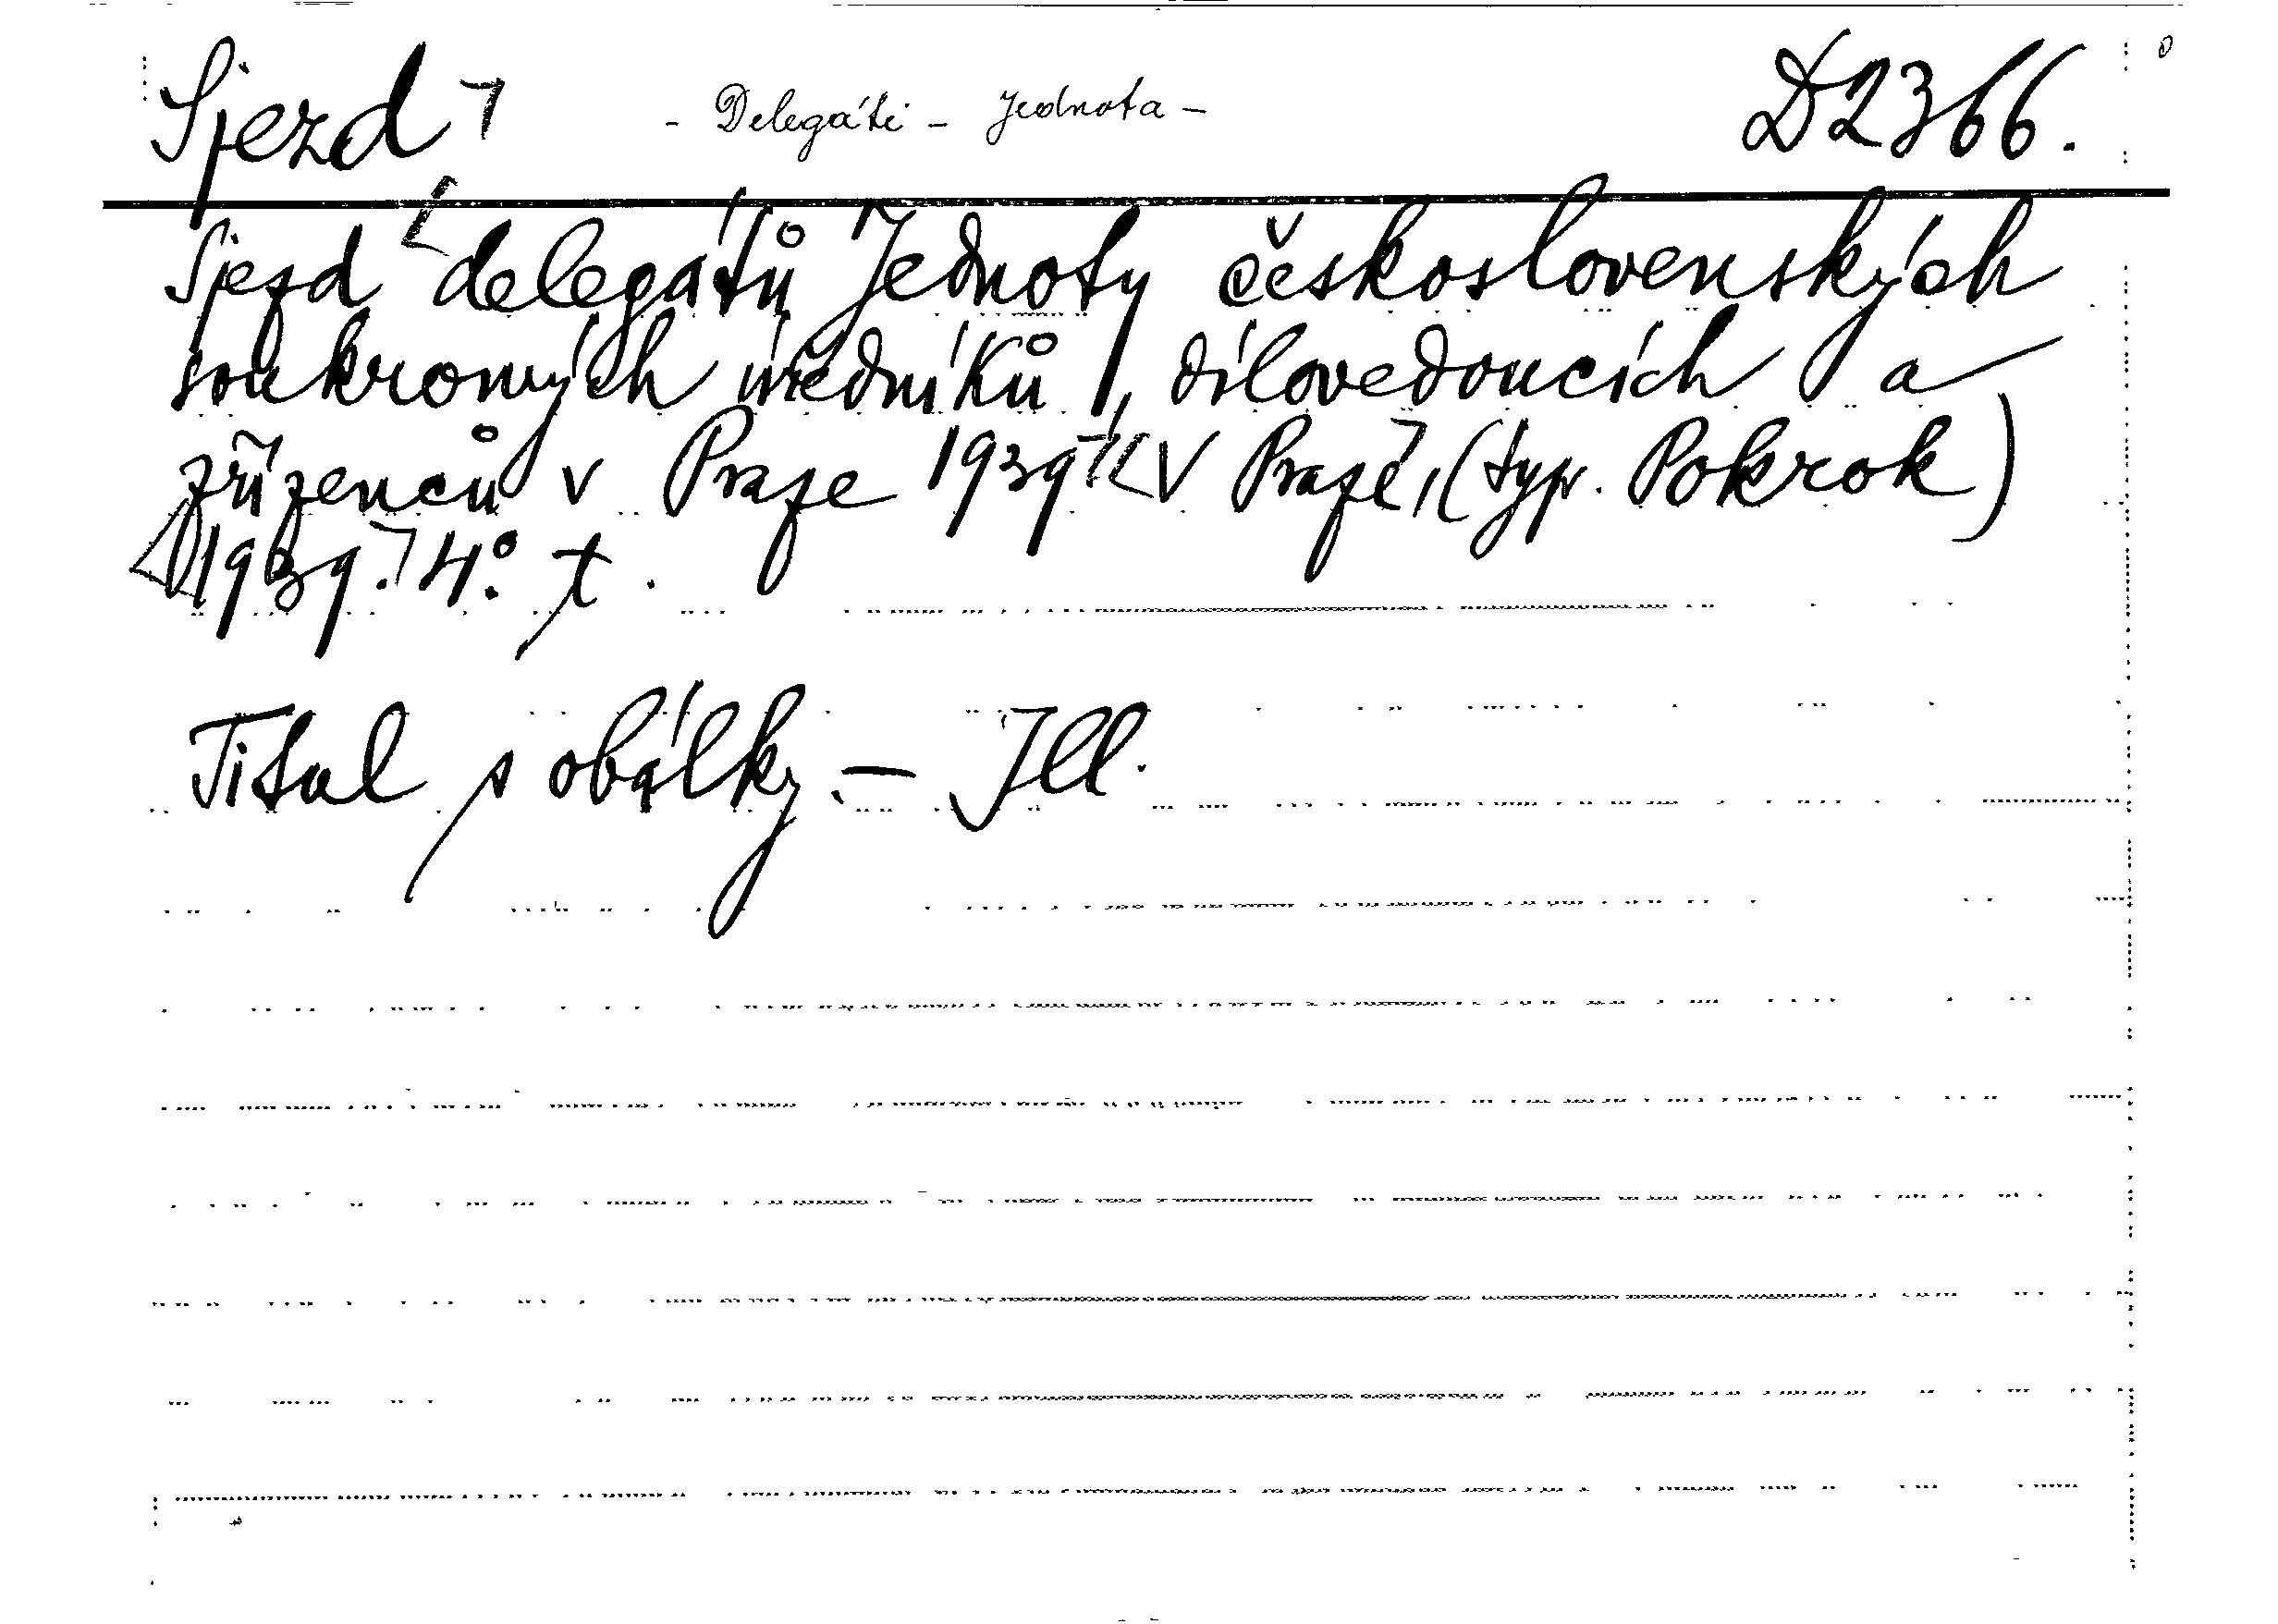 Sjezd - Delegáti - Jednota - D2366.
Sjezd delegátů Jednoty československých
soukromých úředníků, dílovedoucích a
zřízenců v Praze 1939. V Praze, (typ. Pokrok)
1939. 4°. t.
Titul s obálky. - Ill.